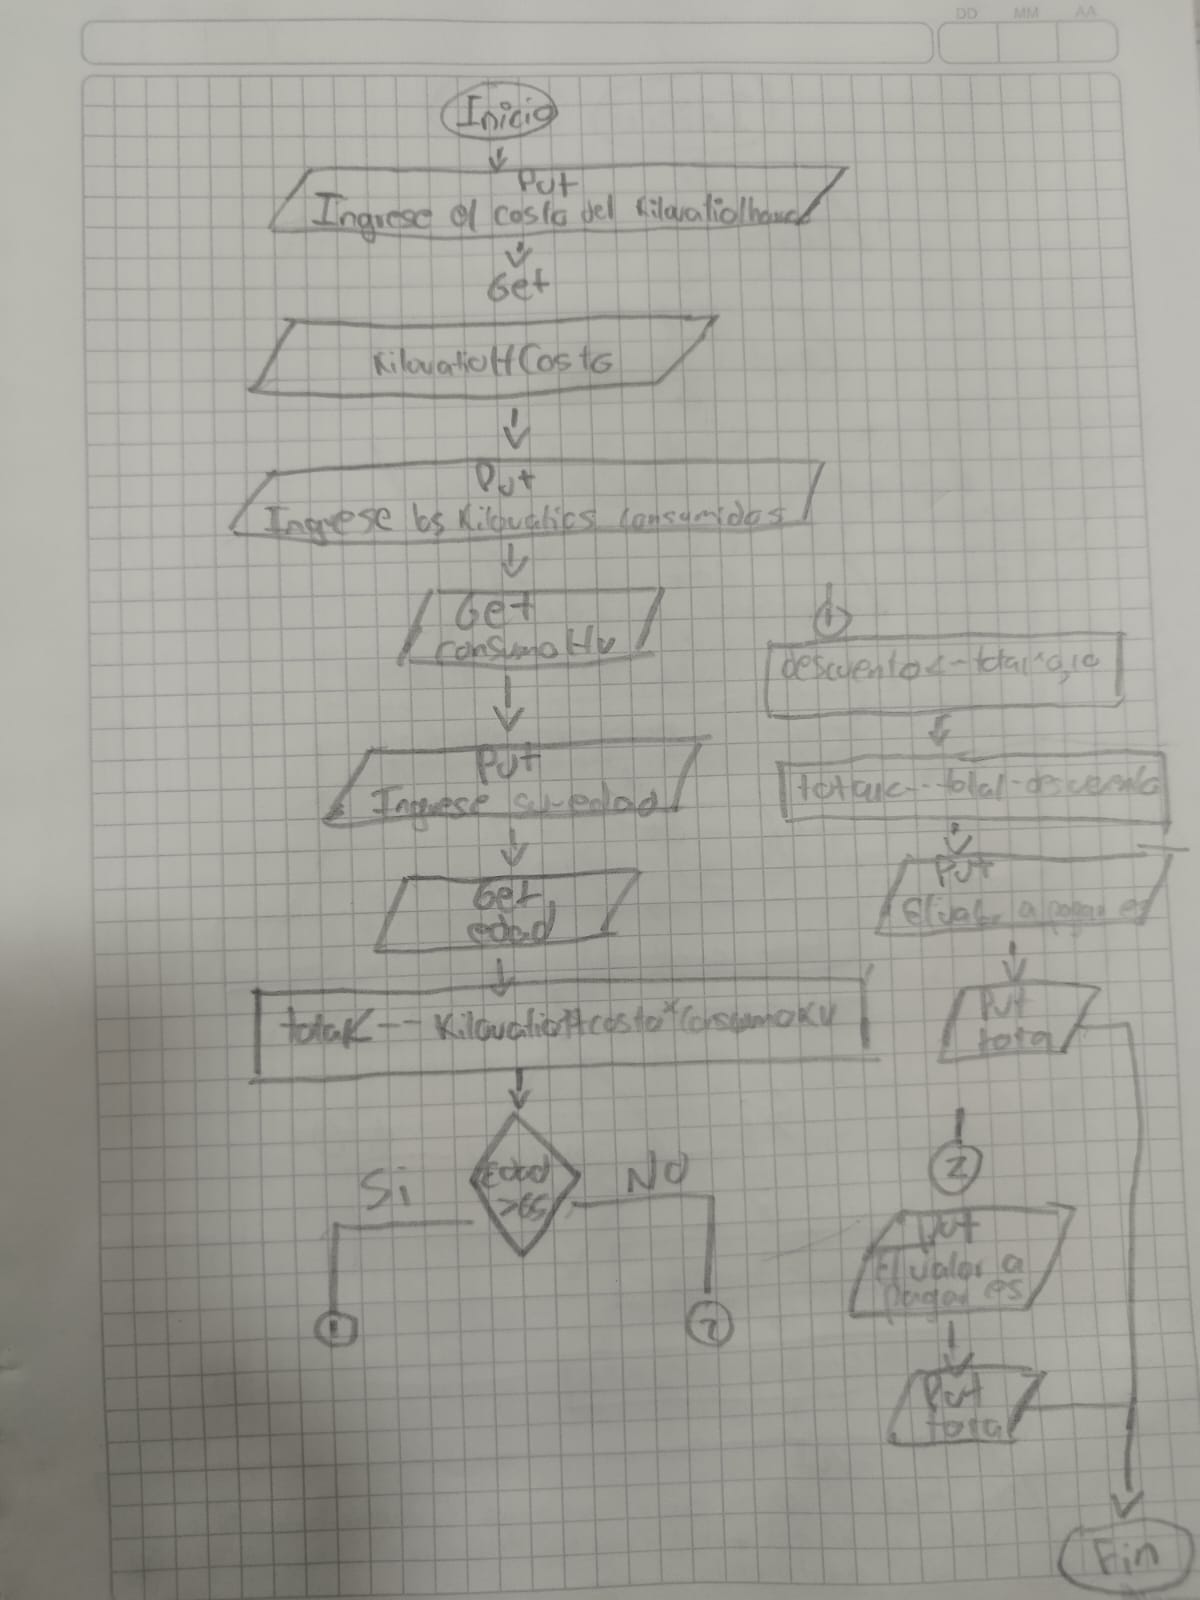 DD MM AA
Inicio
Put
Ingrese el costo del Kilovatio/hora
Get
KilovatioHCosto
Put
Ingrese los Kilovatios consumidos
Get
consumoKv
Put
Ingrese su edad
Get
edad
total<-- KilovatioHcosto*ConsumoKV
Edad
>65
Si
No
1
2
1
descuento<-total*0,10
total<--total-descuento
Put
El valor a pagar es
Put
tota
2
Put
El valor a
pagar es
Put
total
Fin